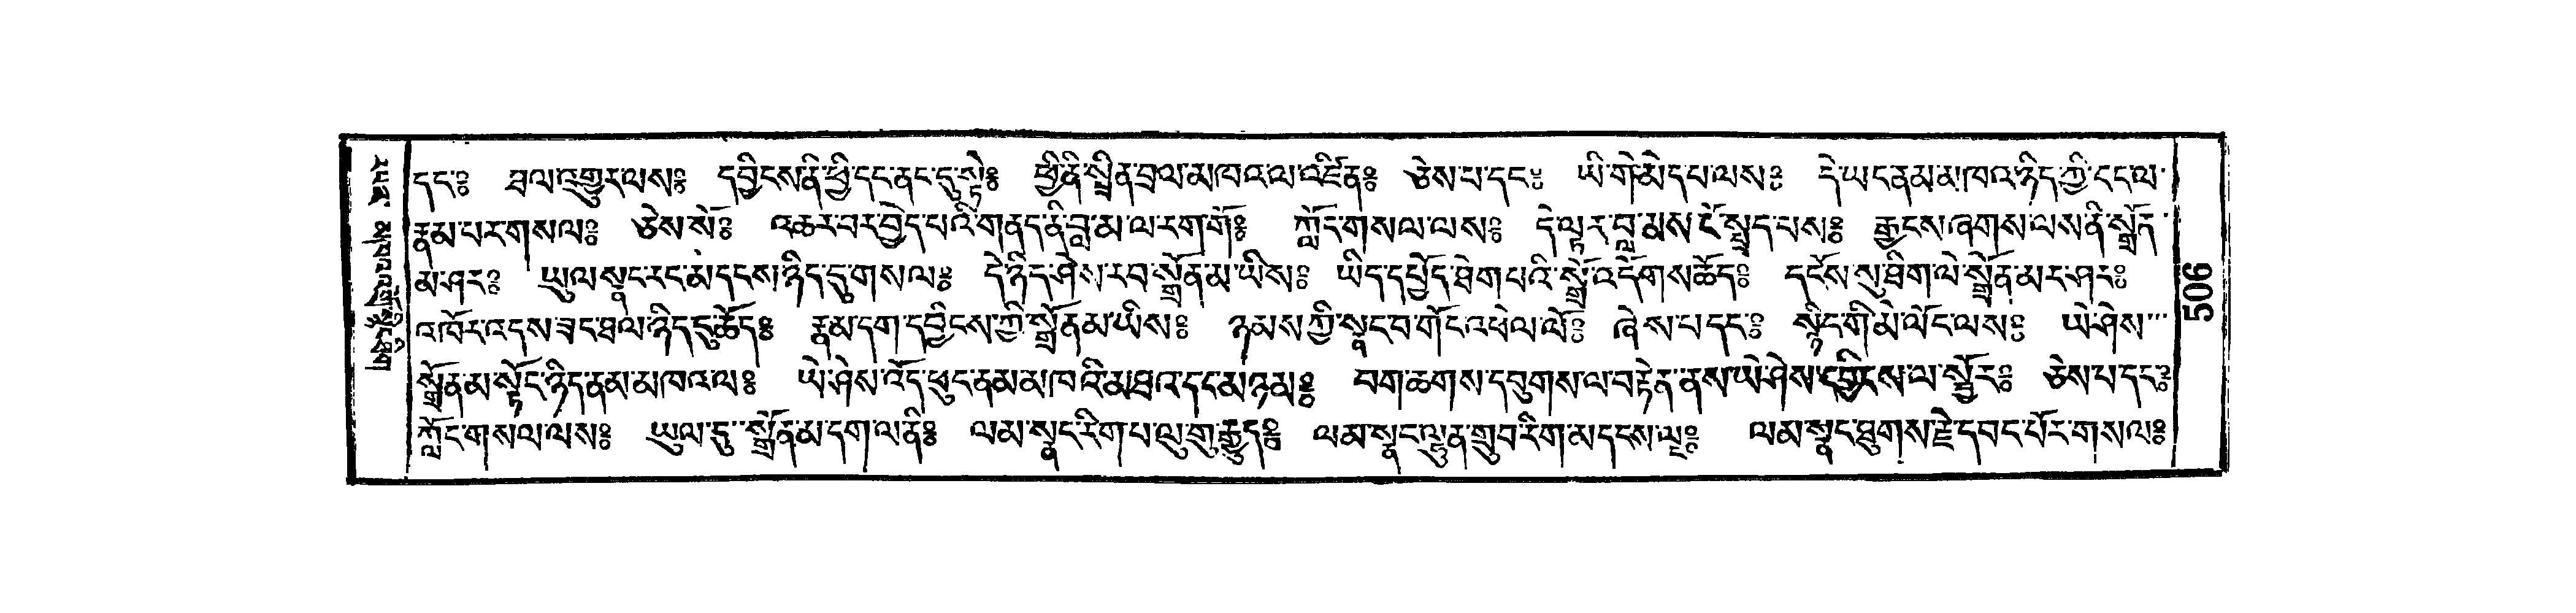 དང༔ ཐལ་འགྱུར་ལས༔ དབྱིངས་ནི་ཕྱི་དང་ནང་དུ་སྟེ༔ ཕྱི་ནི་སྤྲིན་བྲལ་མཁའ་ལ་འཛིན༔ ཅེས་པ་དང༔ ཡི་གེ་མེད་པ་ལས༔ དེ་ཡང་ནམ་མཁའ་ཉིད་ཀྱི་ངང་ལ་
རྣམ་པར་གསལ༔ ཅེས་སོ༔ འཆར་བར་བྱེད་པའི་གནད་ནི་བླ་མ་ལ་རག་གོ༔ ཀློང་གསལ་ལས༔ དེ་ལྟར་བླ་མས་ངོ་སྤྲད་པས༔ རྒྱངས་ཞགས་ལས་ནི་སྒྲོན་
མ་ཤར༔ ཡུལ་སྣང་རང་མདངས་ཉིད་དུ་གསལ༔ དེ་ཉིད་ཤེས་རབ་སྒྲོན་མ་ཡིས༔ ཡིད་དཔྱོད་ཐེག་པའི་སྒྲོ་འདོགས་ཆོད༔ དངོས་སུ་ཐིག་ལེ་སྒྲོན་མར་ཤར༔
འཁོར་འདས་ཟང་ཐལ་ཉིད་དུ་ཆོད༔ རྣམ་དག་དབྱིངས་ཀྱི་སྒྲོན་མ་ཡིས༔ ཉམས་ཀྱི་སྣང་བ་གོང་འཕེལ་ལོ༔ ཞེས་པ་དང༔ སྙིང་གི་མེ་ལོང་ལས༔ ཡེ་ཤེས་
སྒྲོན་མ་སྟོང་ཉིད་ནམ་མཁའ་ལ༔ ཡེ་ཤེས་འོད་ཕུང་ནམ་མཁའི་མཐའ་དང་མཉམ༔ བག་ཆགས་དབུགས་ལ་བརྟེན་ནས་ཡེ་ཤེས་དབྱིངས་ལ་སྦྱོར༔ ཅེས་པ་དང༔
ཀློང་གསལ་ལས༔ ཡུལ་དུ་སྒྲོན་མ་དག་ལ་ནི༔ ལམ་སྣང་རིག་པ་ལུ་གུ་རྒྱུད༔ ལམ་སྣང་ལྷུན་གྲུབ་རིག་མདངས་ལྔ༔ ལམ་སྣང་ཐུགས་རྗེ་དབང་པོར་གསལ༔
506